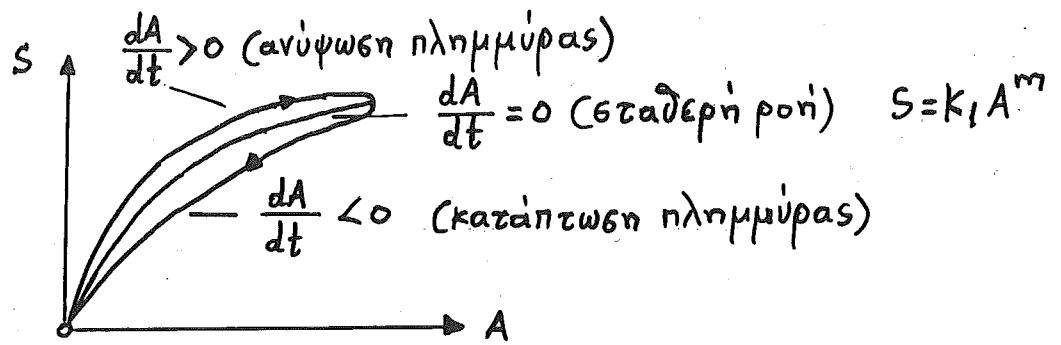 S
dA/dt > 0 (ανύψωση πλημμύρας)
dA/dt = 0 (σταθερή ροή) S = K₁ Aᵐ
dA/dt < 0 (κατάπτωση πλημμύρας)
A